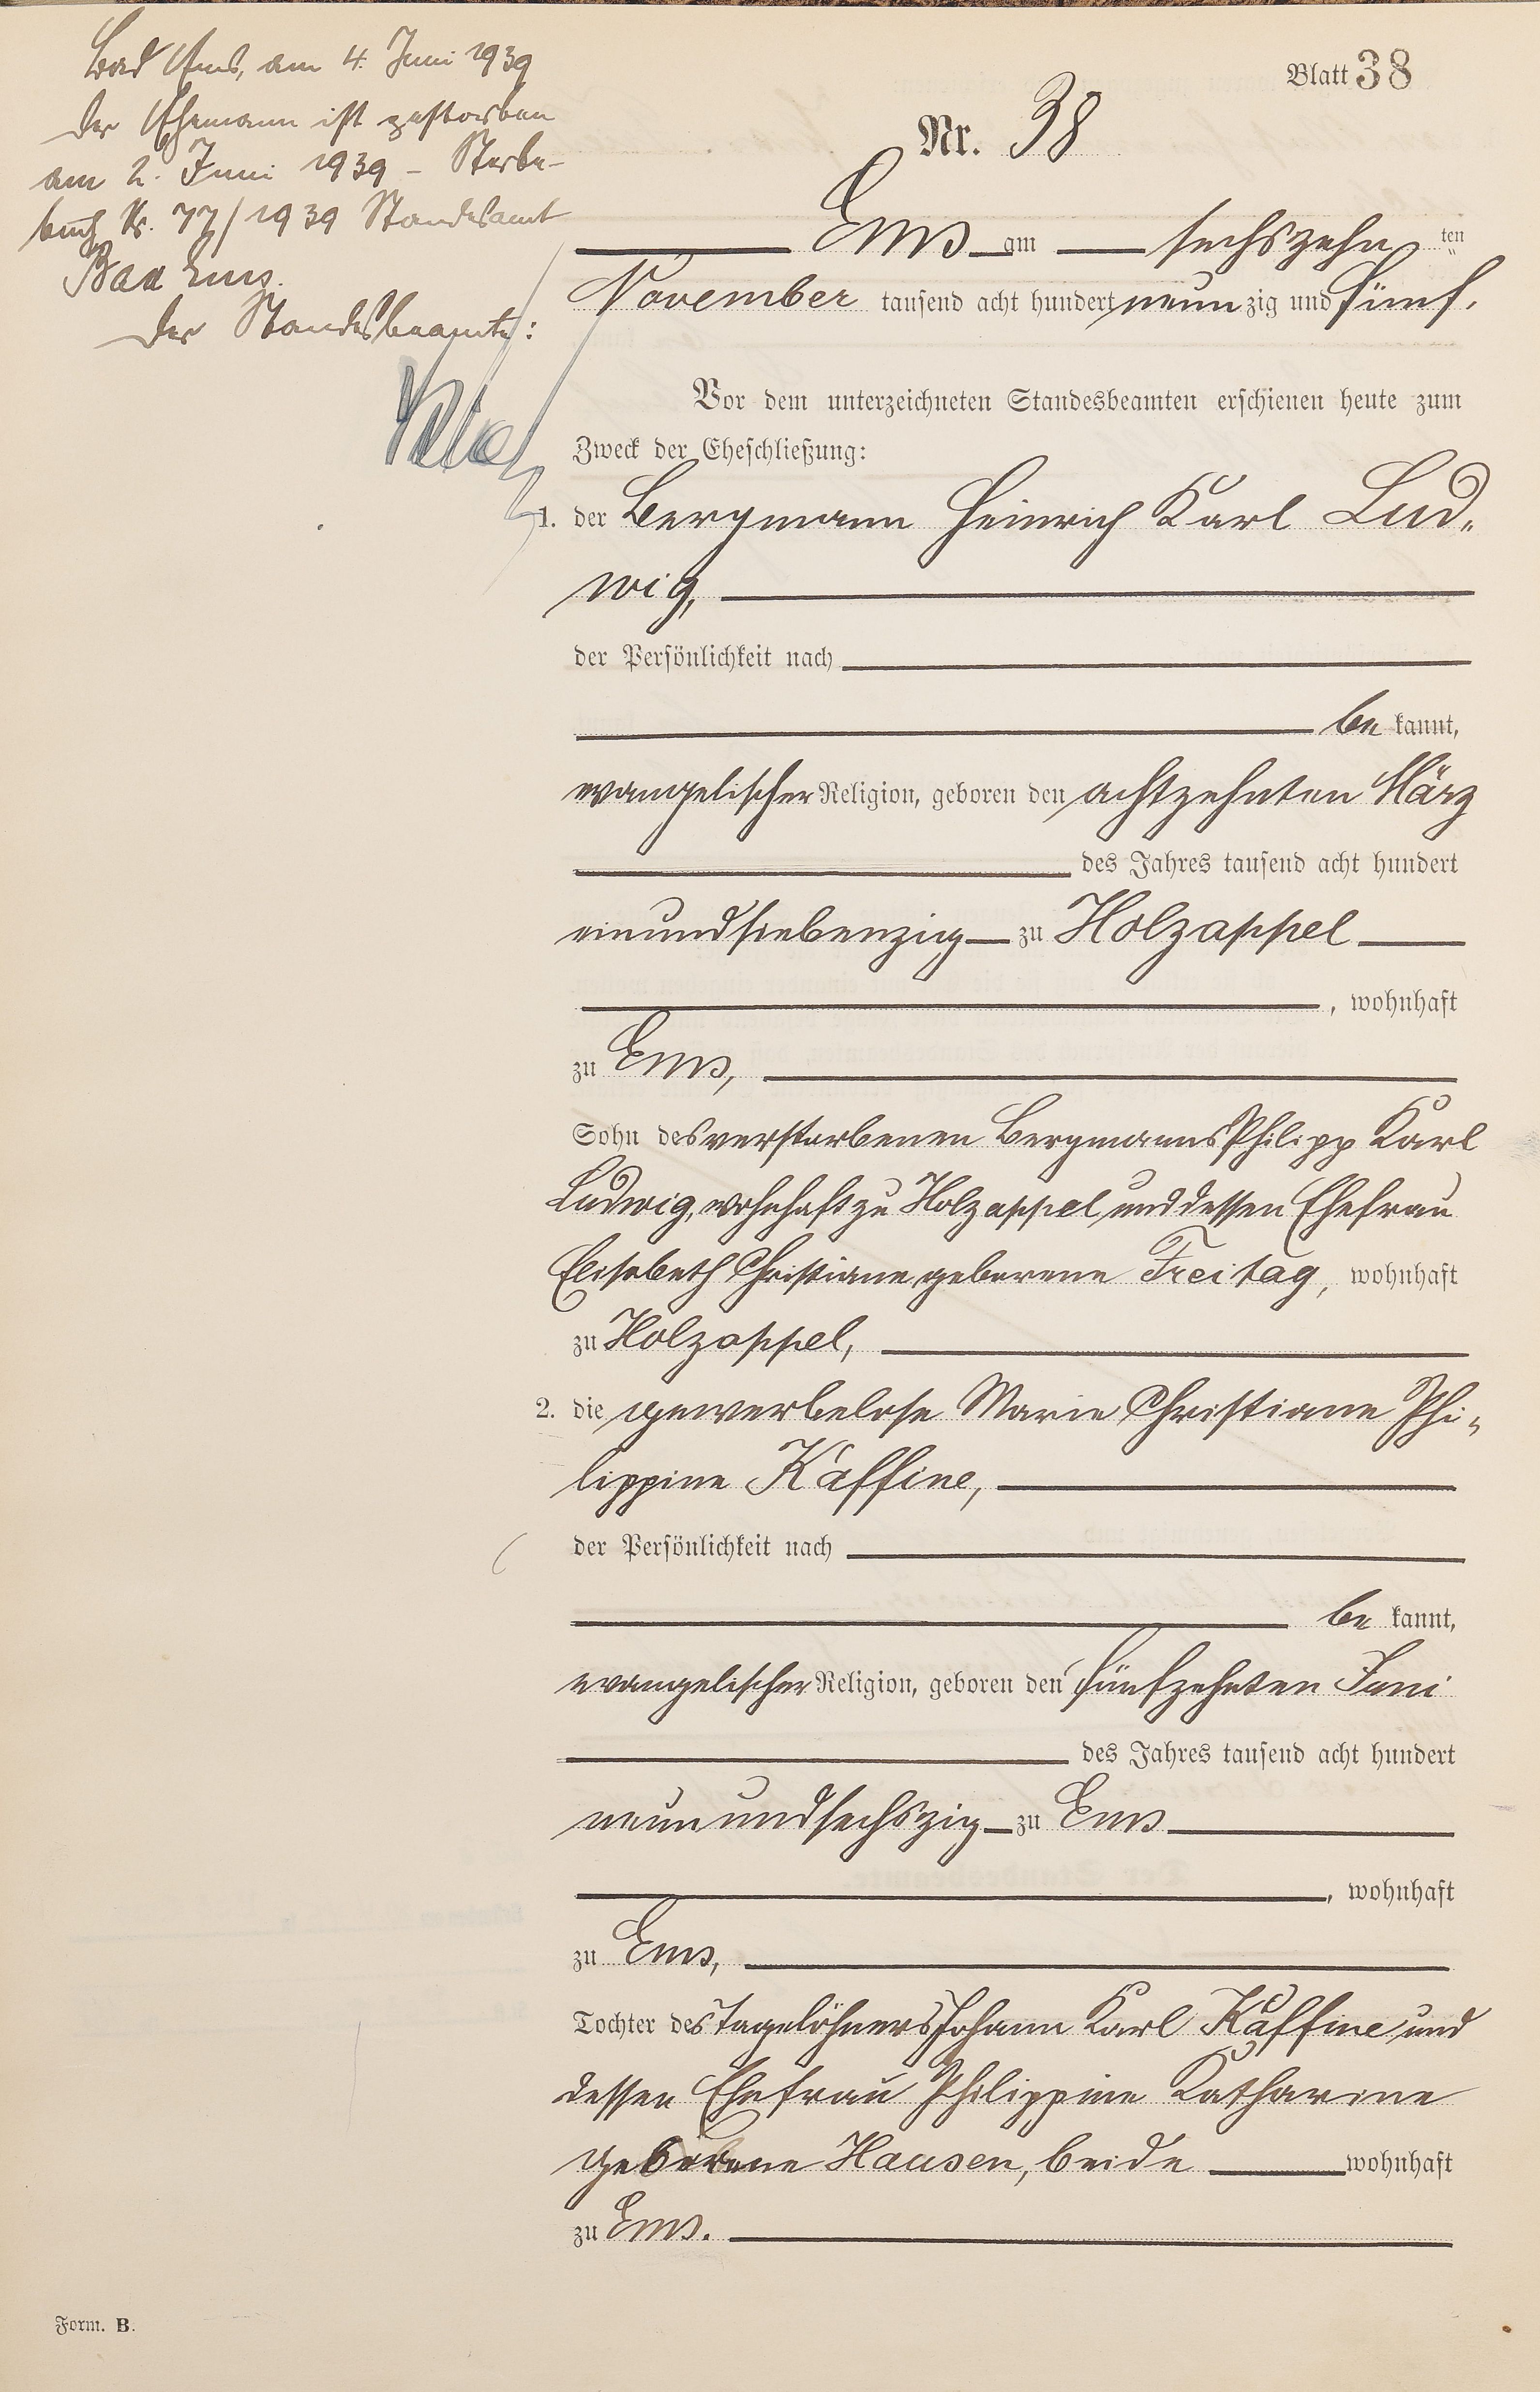 Bad Ems, am 4. Juni 1939
Der Ehemann ist gestorben
am 2. Juni 1939 – Sterbe-
buch Nr. 77/1939 Standesamt
Bad Ems.
Der Standesbeamte:
Blatt 38
Nr. 38
Ems am sechszehn ten
November tausend acht hundert neun zig und fünf.
Vor dem unterzeichneten Standesbeamten erschienen heute zum
Zweck der Eheschließung:
1. der Bergmann Heinrich Karl Lud„
wig,
der Persönlichkeit nach
be kannt,
evangelischer Religion, geboren den achtzehnten März
des Jahres tausend acht hundert
einundsiebenzig zu Holzappel
, wohnhaft
zu Ems,
Sohn des verstorbenen Bergmanns Philipp Karl
Ludwig, wohnhaft zu Holzappel und dessen Ehefrau
Elisabeth Christiane geborene Freitag, wohnhaft
zu Holzappel,
2. die gewerbelose Marie Christiane Phi„
lippine Kaffine,
der Persönlichkeit nach
be kannt,
evangelischer Religion, geboren den fünfzehnten Juni
des Jahres tausend acht hundert
neunundsechszig zu Ems
, wohnhaft
zu Ems,
Tochter des Tagelöhners Johann Karl Kaffine und
dessen Ehefrau Philippine Katharine
geborene Hausen, beide wohnhaft
zu Ems.
Form. B.